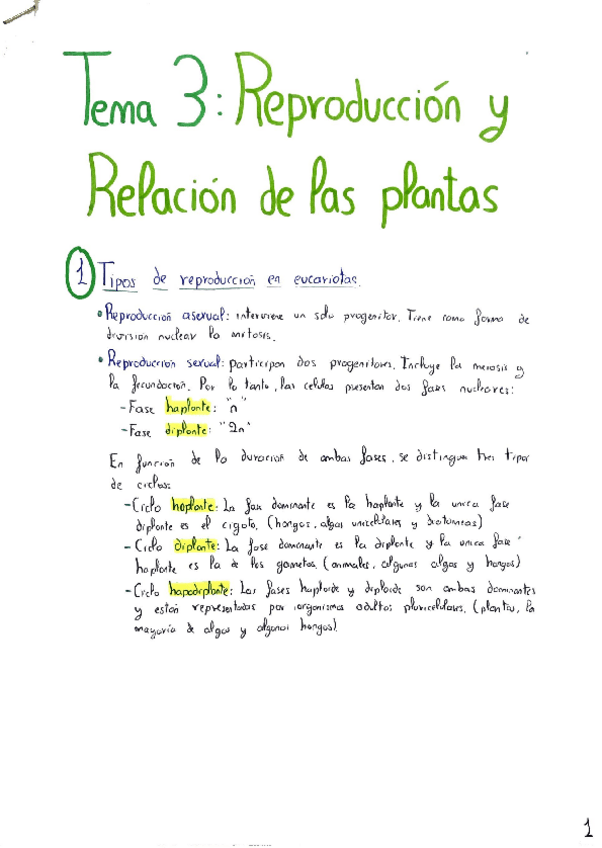 Tema 3: Reproducción y
Relación de las plantas
1 Tipos de reproducción en eucariotas.
• Reproducción asexual: interviene un solo progenitor. Tiene como forma de
división nuclear la mitosis.
• Reproducción sexual: participan dos progenitores. Incluye la meiosis y
la fecundación. Por lo tanto, las celulas presentan dos fases nucleares:
- Fase haplonte: "n"
- Fase diplonte: "2n"
En función de la duración de ambas fases, se distinguen tres tipos
de ciclos:
- Ciclo haplonte: La fase dominante es la haplonte y la unica fase
diplonte es el cigoto. (hongos, algas unicelulares y diatomeas)
- Ciclo diplonte: La fase dominante es la diplonte y la unica fase
haplonte es la de los gametos. (animales, algunas algas y hongos)
- Ciclo hapodiplonte: Las fases haploide y diploide son ambas dominantes
y están representadas por organismos adultos pluricelulares. (plantas, la
mayoría de algas y algunos hongos).
1